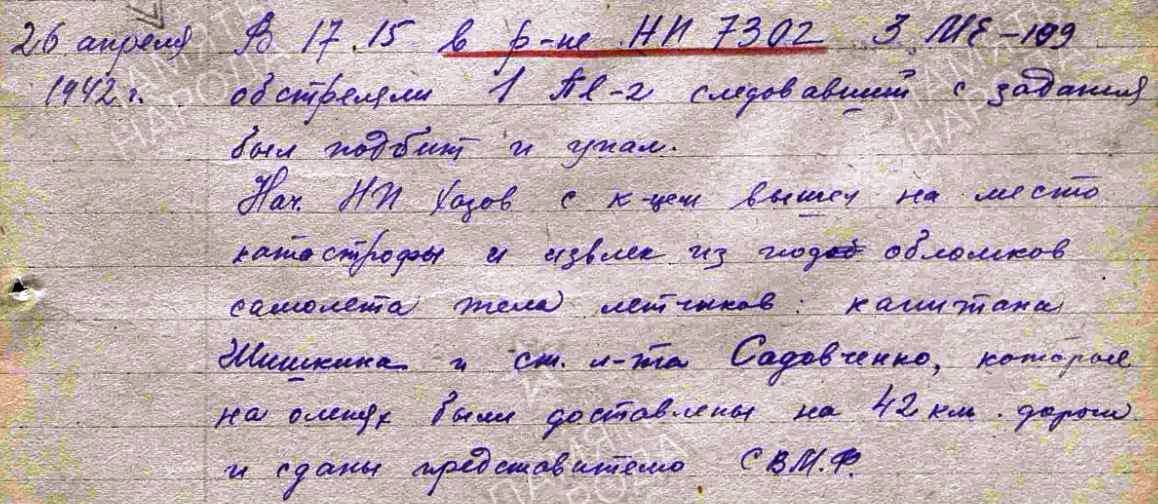 26 апреля В 17.15 в р-не НП 7302 3 МЕ-109
1942 г. обстреляли 1 Пе-2 следовавший с задания
был подбит и упал.
Нач. НП Хазов с к-цем вышел на место
катастрофы и извлек из под обломков
самолета тела летчиков: капитана
Шишкина и ст. л-та Садовченко, которые
на оленях были доставлены на 42 км. дороги
и сданы представителю СВМФ.
ПАМЯТЬ НАРОДА